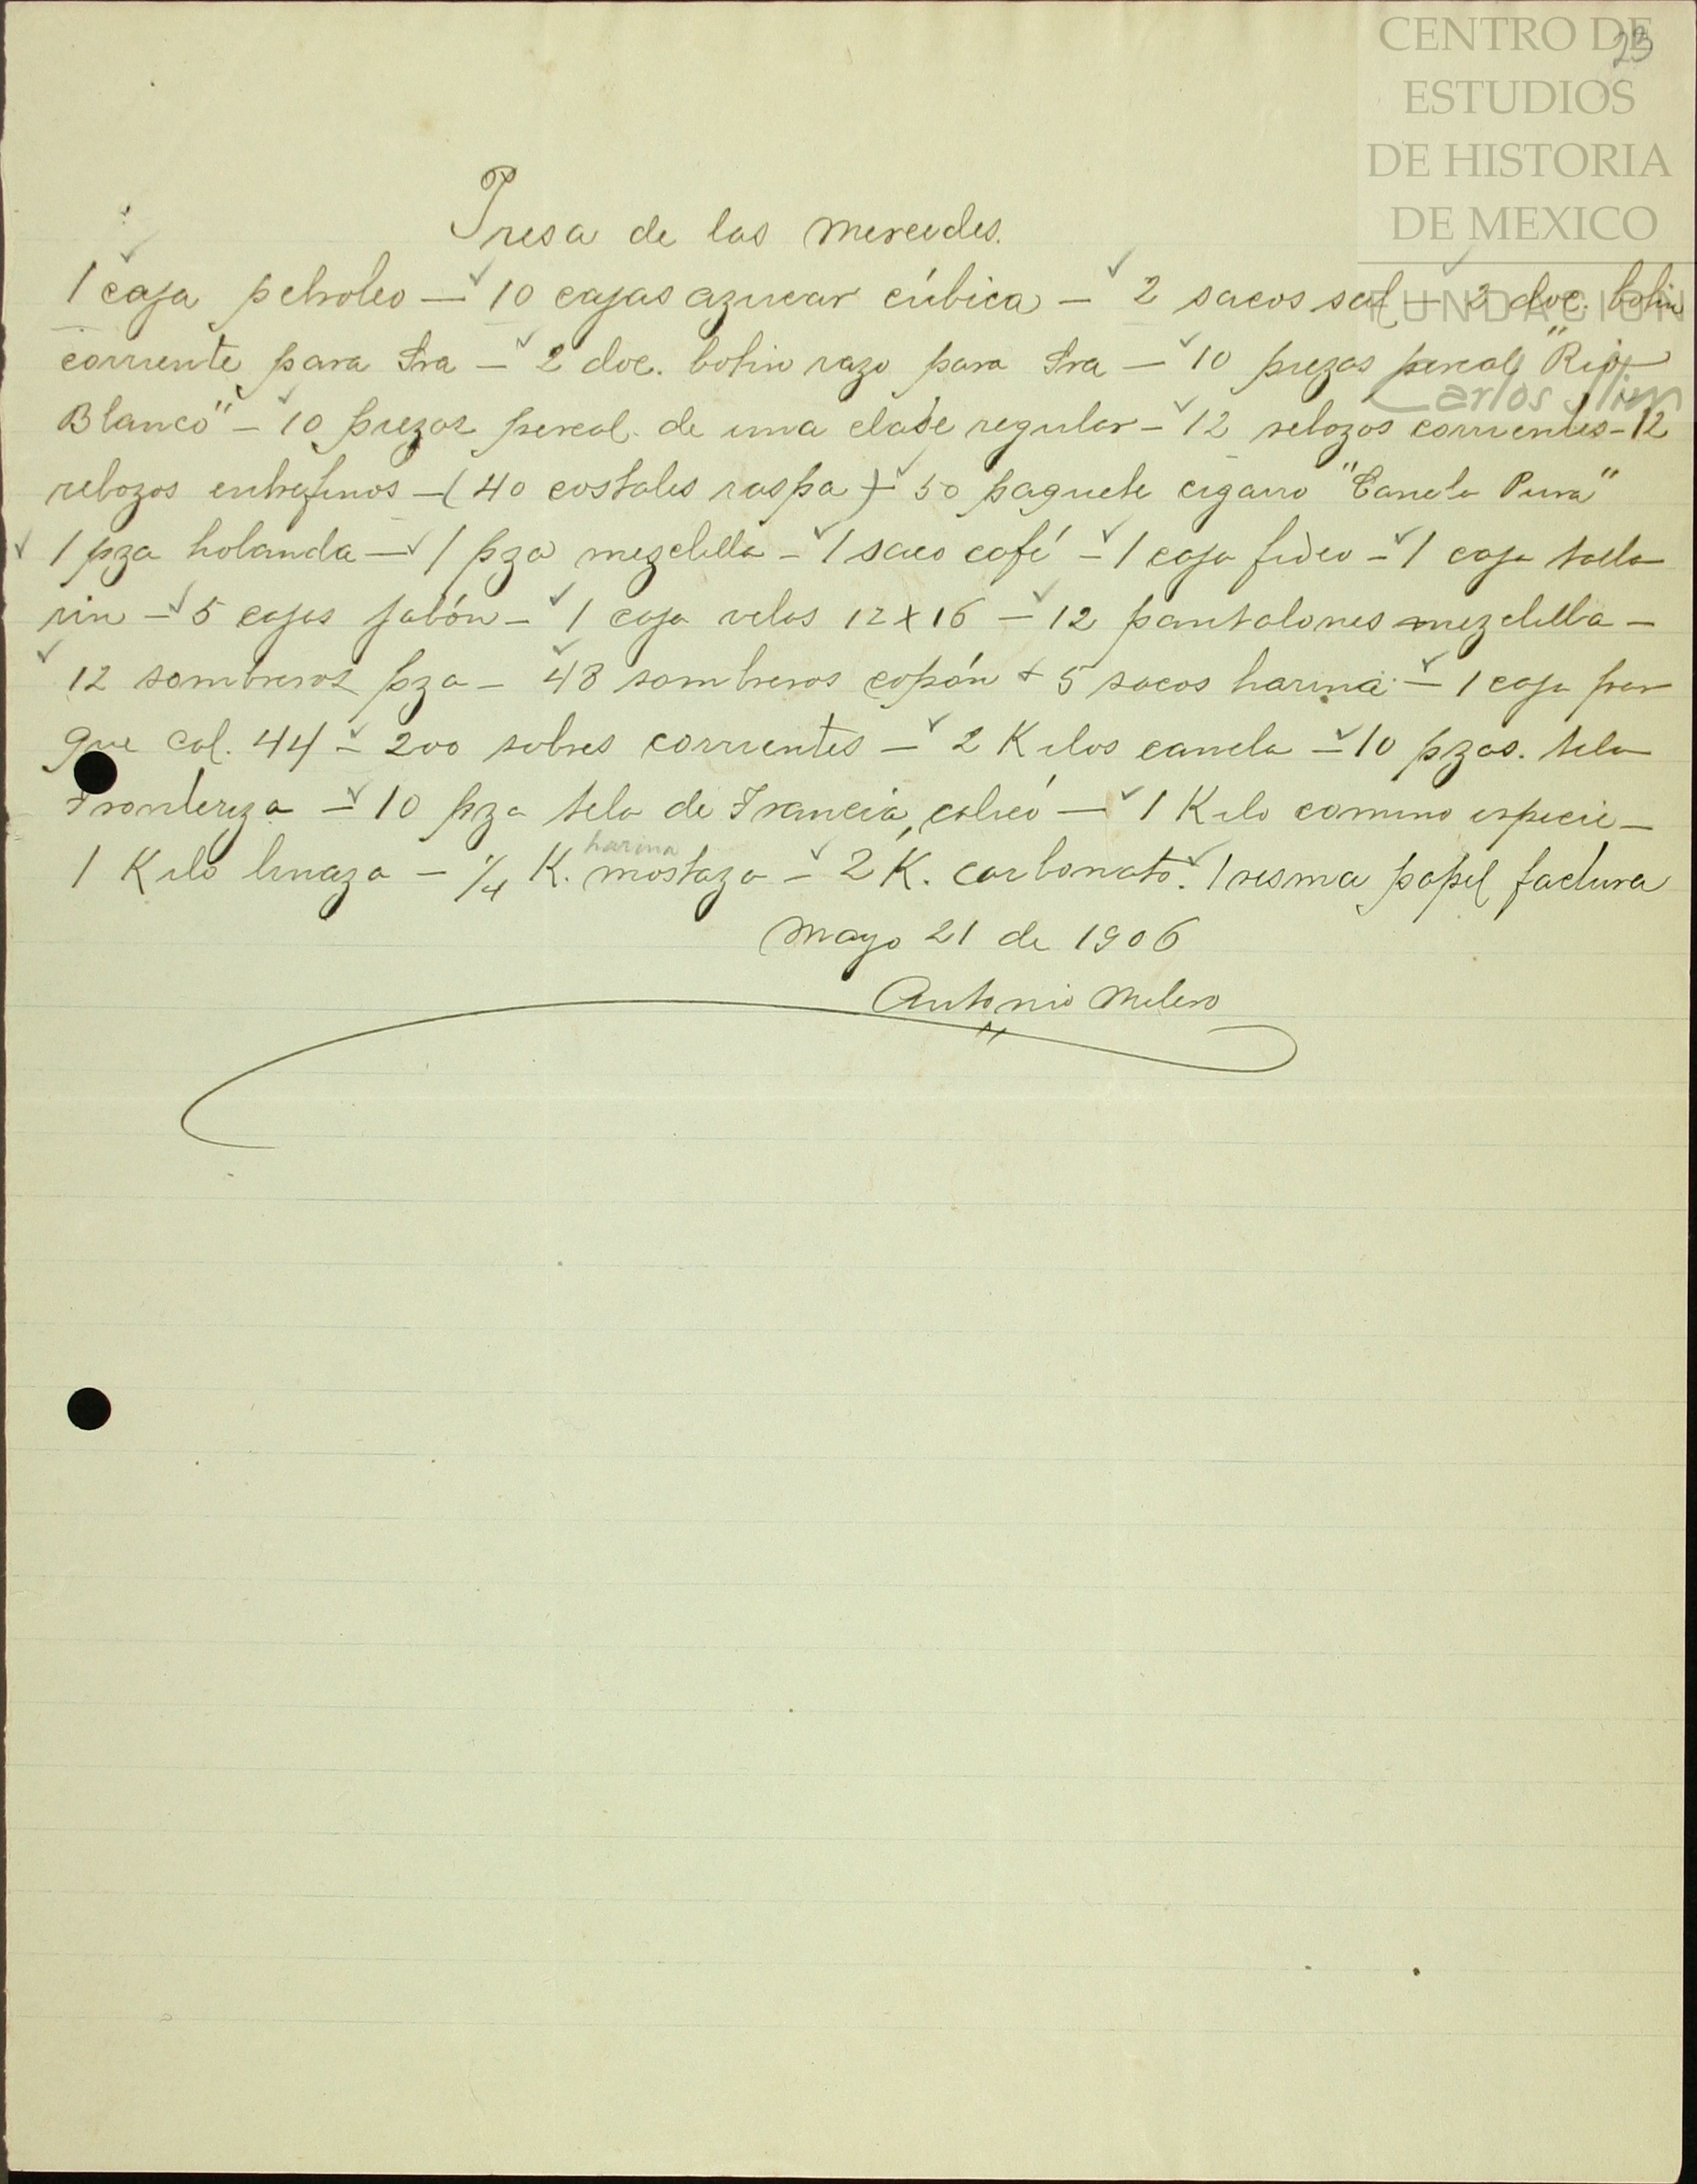 CENTRO DE
ESTUDIOS
DE HISTORIA
DE MEXICO
FUNDACION
Carlos Slim
23
Presa de las Mercedes.
1 caja petroleo – 10 cajas azucar cúbica – 2 sacos sal – 2 doc. botin
corriente para Sra – 2 doc. botin razo para Sra – 10 piezas percal "Rio
Blanco" – 10 piezas percal de una clase regular – 12 rebozos corrientes – 12
rebozos entrefinos – (40 costales raspa) – 50 paquete cigarro "Canela Pura"
1 pza holanda – 1 pza mezclilla – 1 saco café – 1 caja fideo – 1 caja talla
rin – 5 cajas jabón – 1 caja velas 12 x 16 – 12 pantalones mezclilla –
12 sombreros pza – 48 sombreros copón + 5 sacos harina – 1 caja par
que cal. 44 – 200 sobres corrientes – 2 Kilos canela – 10 pzas. tela
Fronteriza – 10 pza tela de Francia, calicó – 1 Kilo comino especie –
1 Kilo linaza – 1/4 K. harina mostaza – 2 K. carbonato. 1 resma papel factura
Mayo 21 de 1906
Antonio Melero